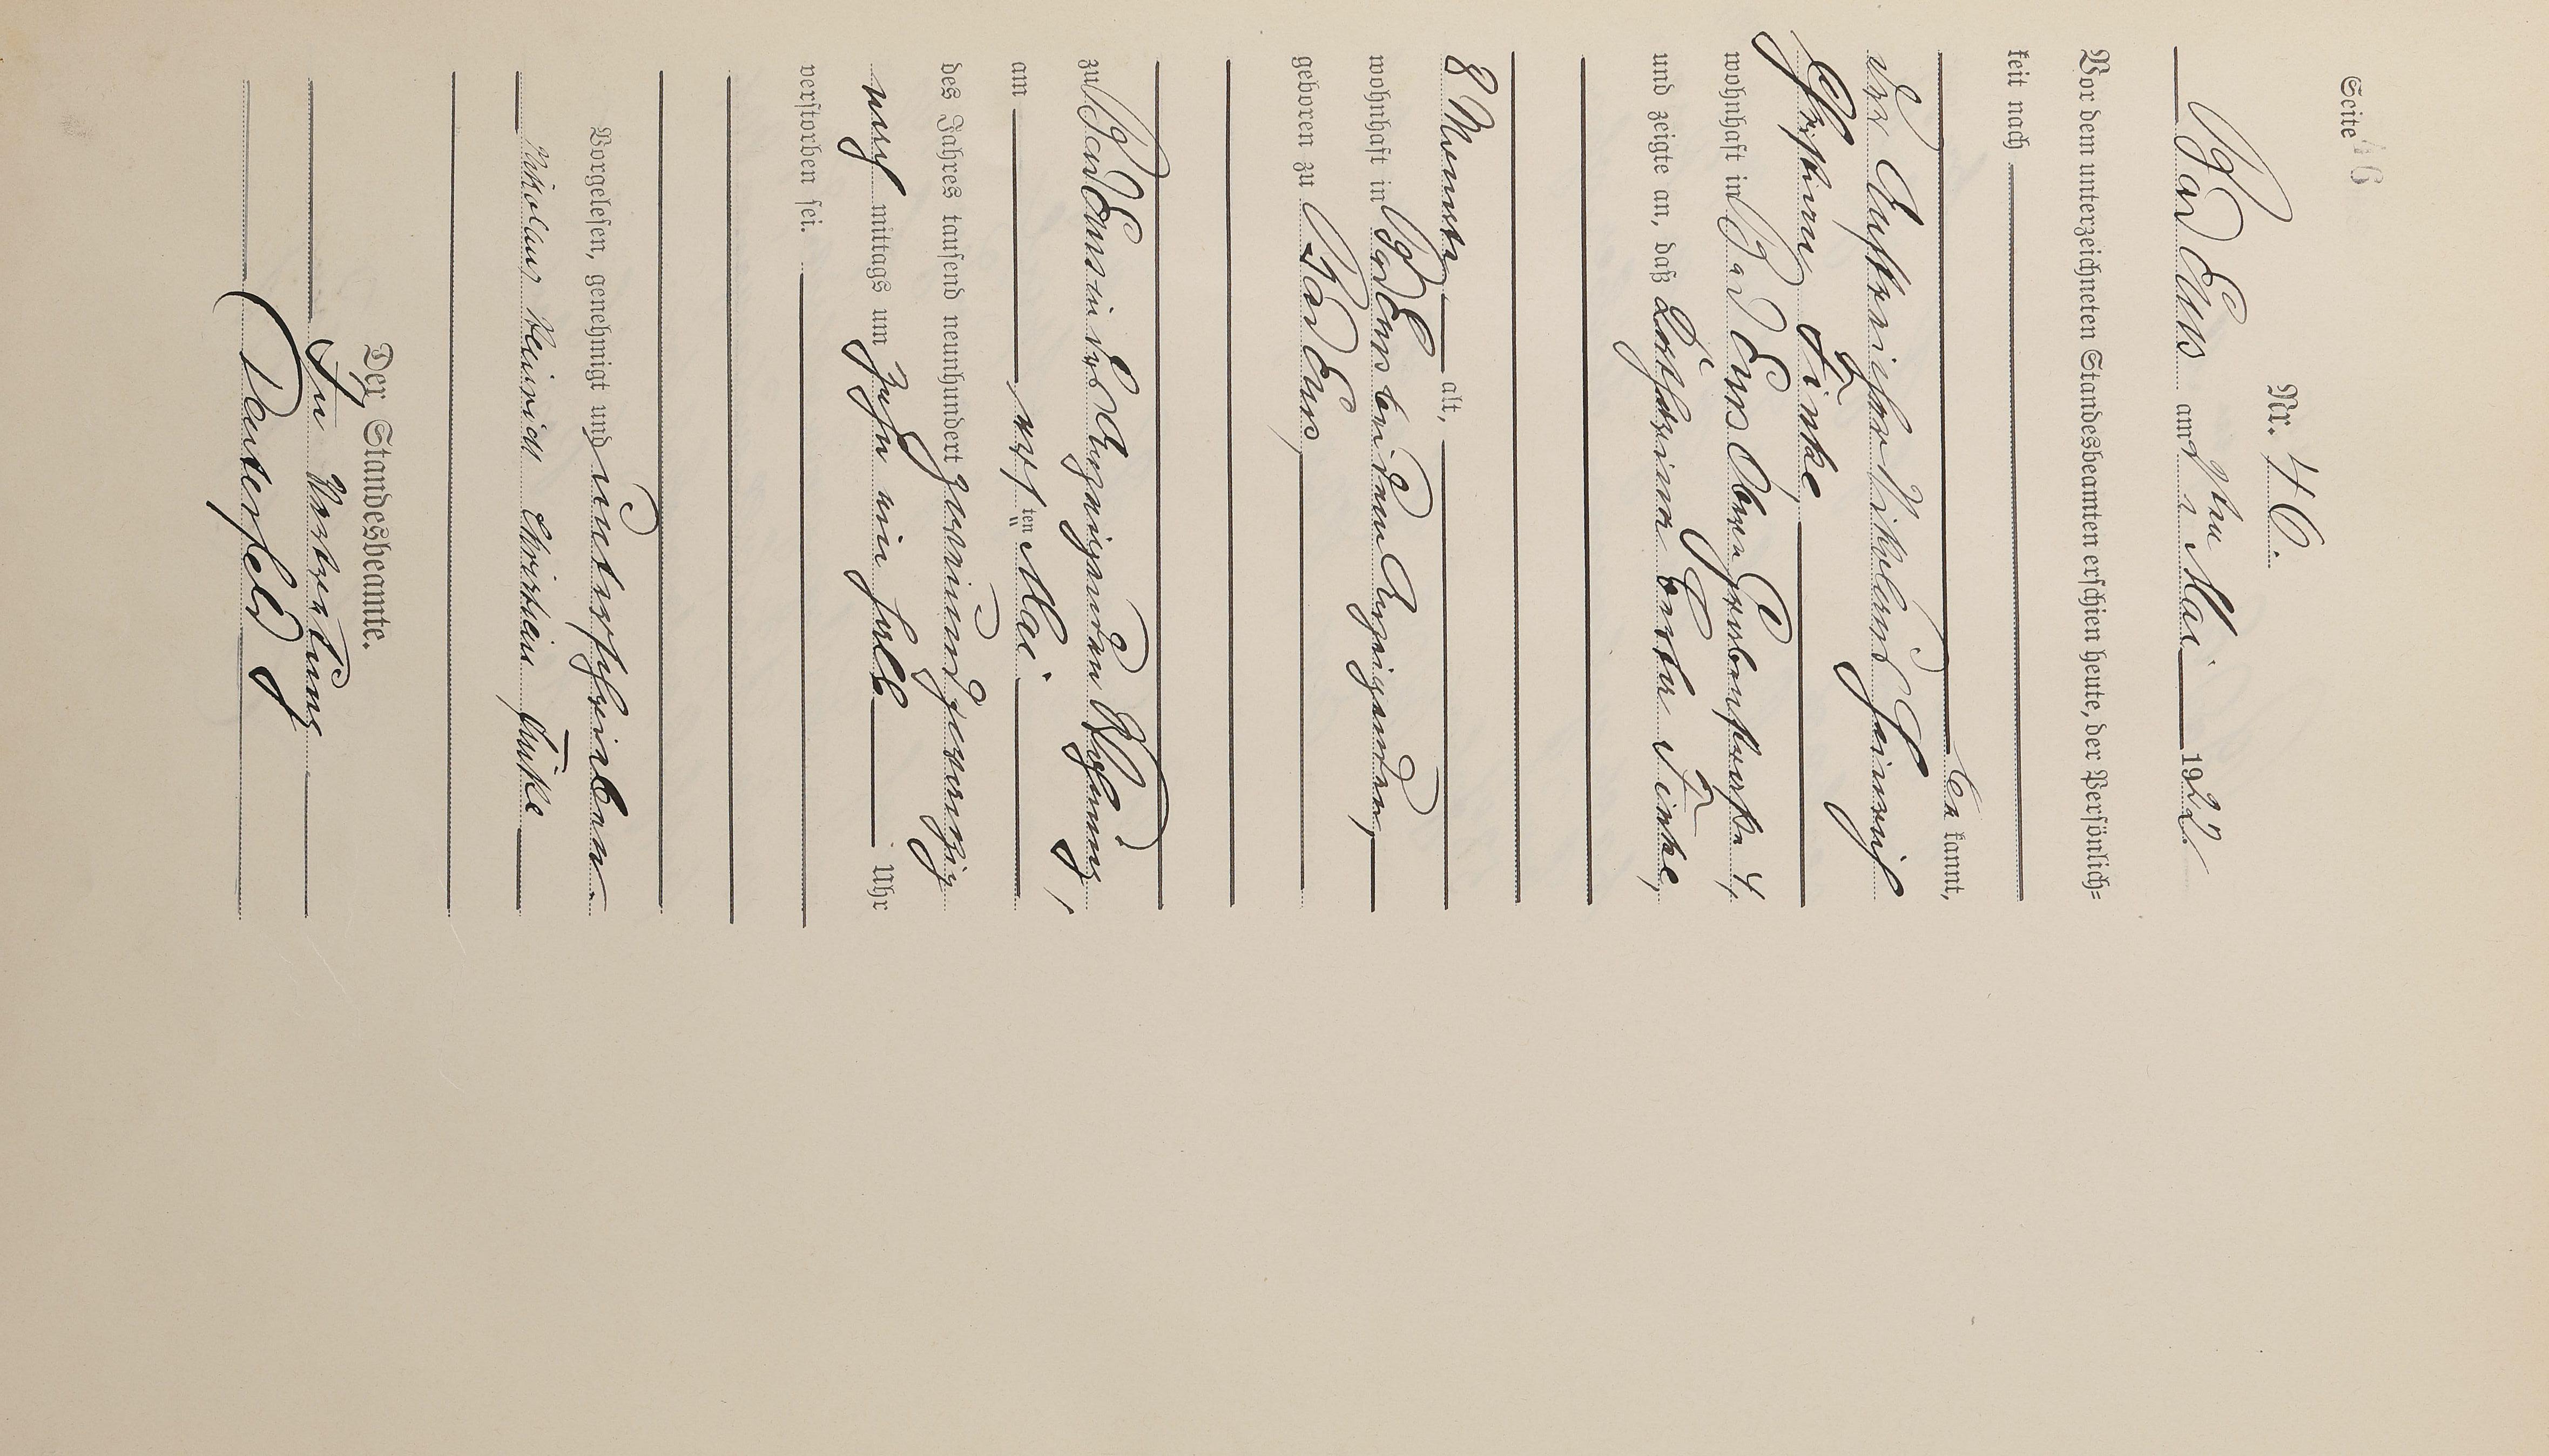 Seite 46
Nr. 46.
Bad Ems am 9ten Mai 1922.
Vor dem unterzeichneten Standesbeamten erschien heute, der Persönlich-
keit nach
be kannt,
der Nikolaus Heinrich
Christian Finke,
wohnhaft in Bad Ems Obere Grabenstraße 4,
und zeigte an, daß Katharina Berta Finke,
8 Monate alt,
wohnhaft in Bad Ems bei dem Anzeigenden,
geboren zu Bad Ems,
zu Bad Ems in des Anzeigenden Wohnung,
am achten Mai
des Jahres tausend neunhundert zweiundzwanzig
nach mittags um zehn ein halb Uhr
verstorben sei.
Vorgelesen, genehmigt und unterschrieben.
Nikolaus Heinrich Christian Finke
Der Standesbeamte.
In Vertretung